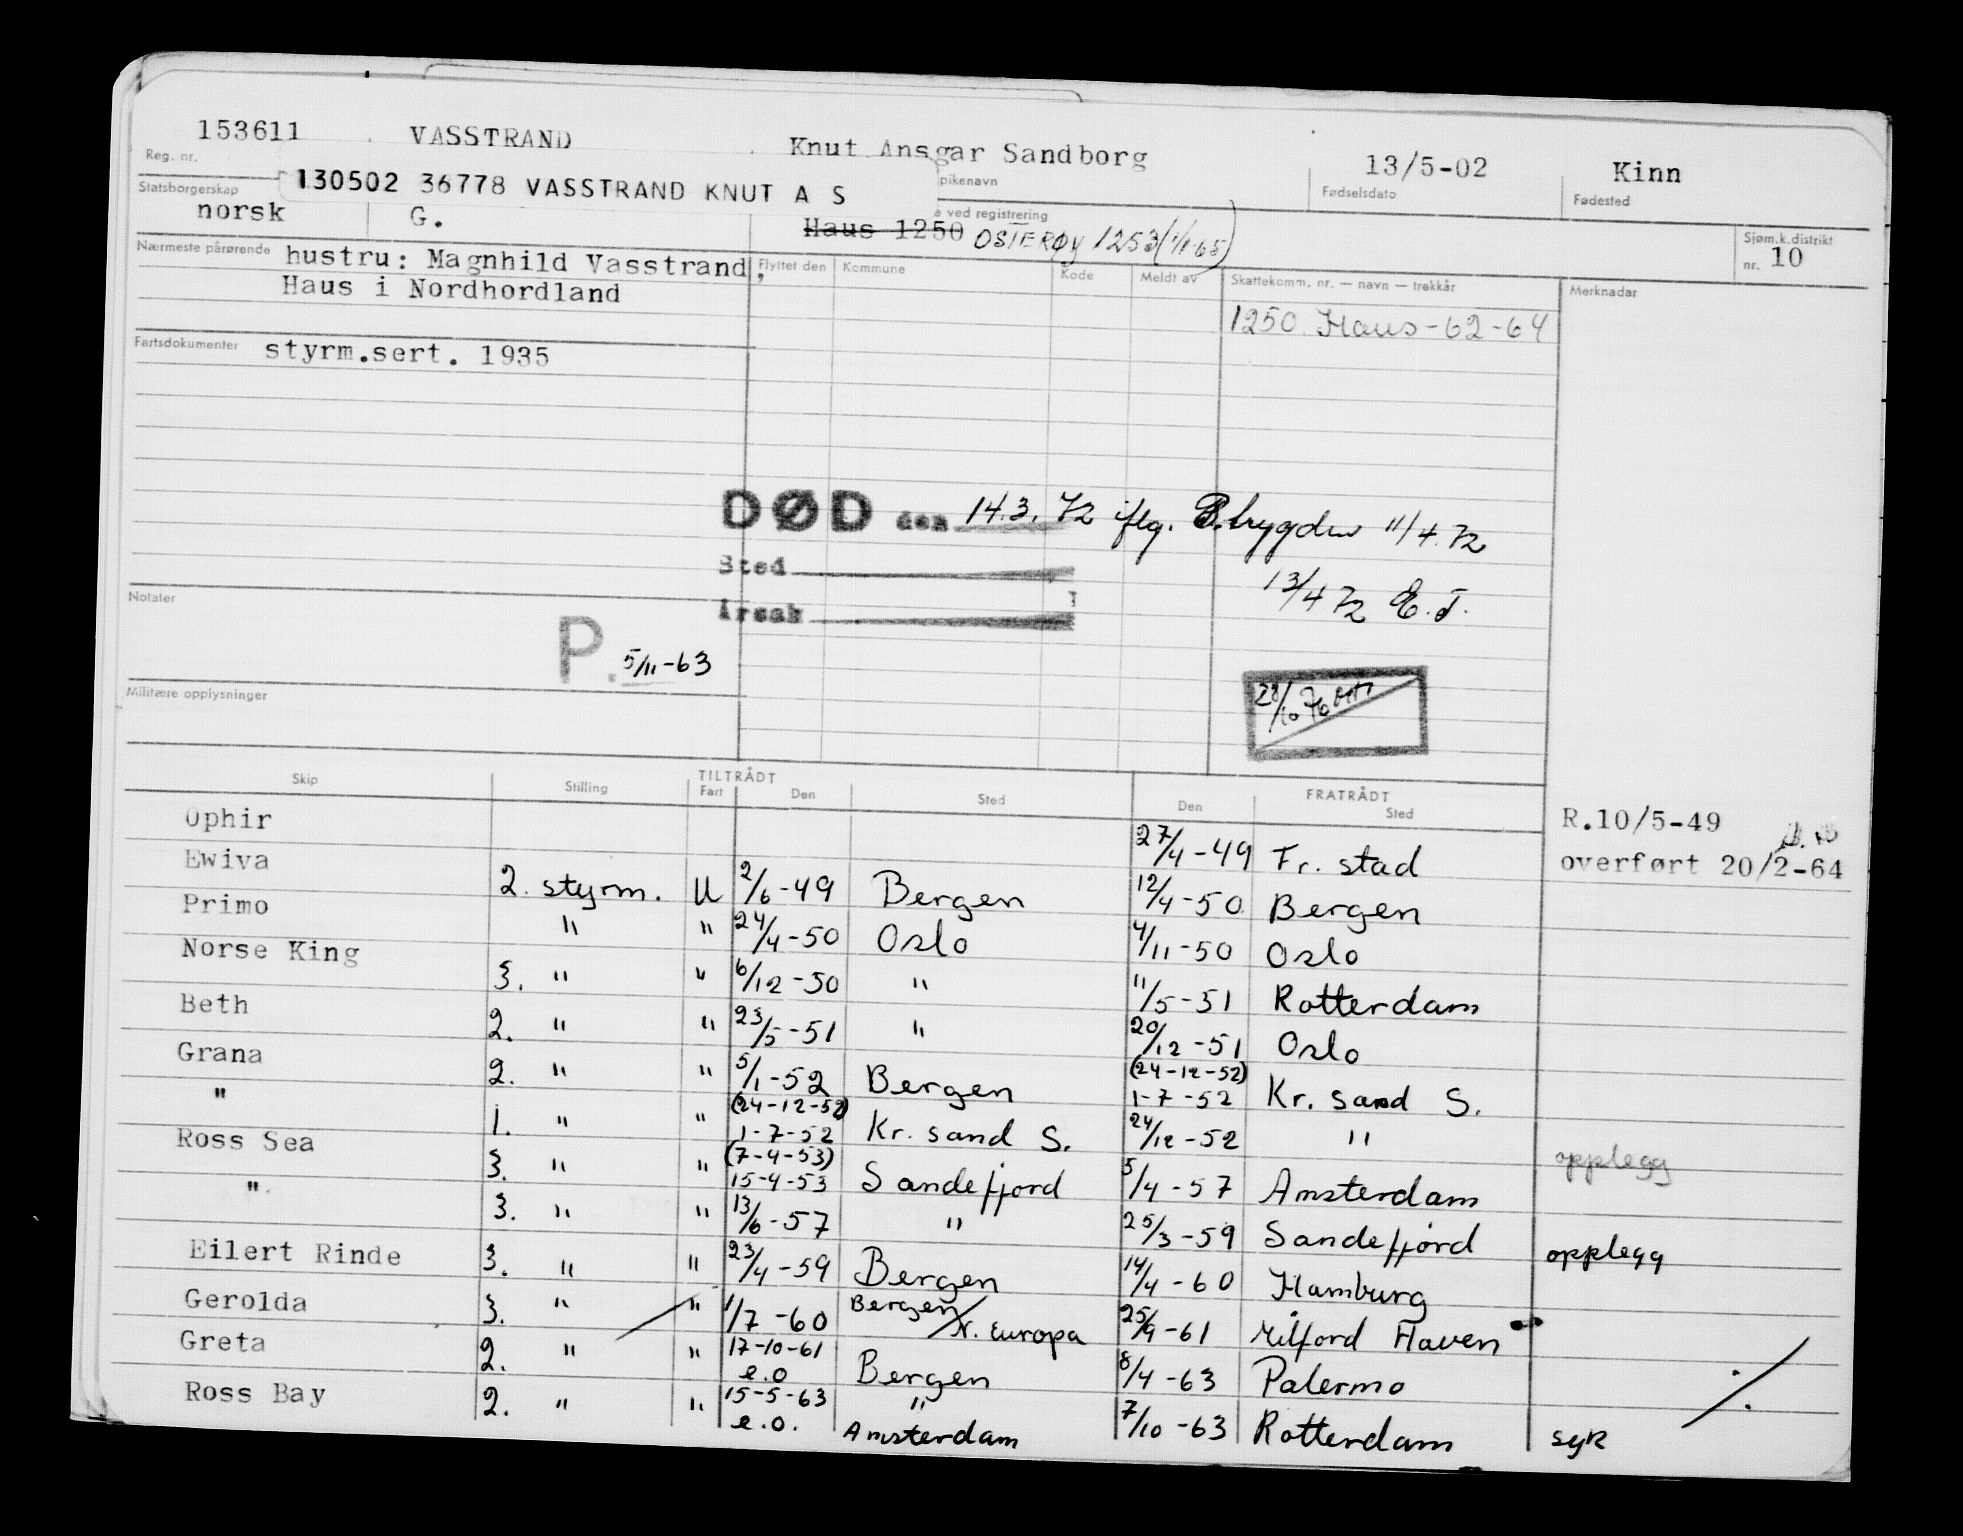 153611 VASSTRAND Knut Ansgar Sandborg 13/5-02 Kinn
Reg. nr. pikenavn Fødselsdato Fødested
130502 36778 VASSTRAND KNUT A S
Statsborgerskap ved registrering
norsk G. Haus 1250 OSTERØY 1253 (1/1-65)
Sjøm.k.distrikt nr. 10
Nærmeste pårørende hustru: Magnhild Vasstrand,
Haus i Nordhordland
Flyttet den Kommune Kode Meldt av Skattekomm. nr. — navn — trekkår Merknadar
1250 Haus-62-64
Fartsdokumenter styrm.sert. 1935
DØD den 14.3.72 iflg. 11/4.72
Sted
13/4 72 E.J.
Årsak
Notater
P. 5/11-63
28/10 70
Militære opplysninger
Skip Stilling TILTRÅDT Fart Den Sted FRATRÅDT Den Sted
Ophir 27/4-49 Fr. stad R.10/5-49
overført 20/2-64
Ewiva 2. styrm. U 2/6-49 Bergen 12/4-50 Bergen
Primo " " 24/4-50 Oslo 4/11-50 Oslo
Norse King 3. " " 6/12-50 " 11/5-51 Rotterdam
Beth 2. " " 23/5-51 " 20/12-51 Oslo
Grana 2. " " 5/1-52 Bergen (24-12-52) 1-7-52 Kr. sand S.
" 1. " " (24-12-52) 1-7-52 Kr. sand S. 24/12-52 " opplegg
Ross Sea 3. " " (7-4-53) 15-4-53 Sandefjord 5/4-57 Amsterdam
" 3. " " 13/6-57 " 25/3-59 Sandefjord opplegg
Eilert Rinde 3. " " 23/4-59 Bergen 14/4-60 Hamburg
Gerolda 3. " " 1/7-60 Bergen/N. Europa 25/9-61 Milford Haven
Greta 2. " " 17-10-61 e.o Bergen 8/4-63 Palermo
Ross Bay 2. " " 15-5-63 e.o. " Amsterdam 7/10-63 Rotterdam syk